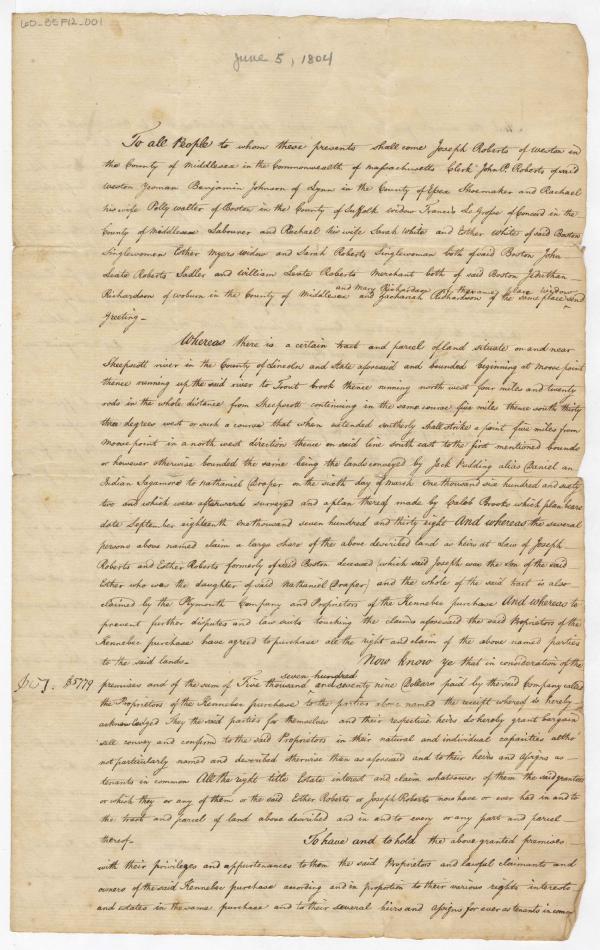 60_BSF12_001
June 5, 1804
To all People to whom these presents shall come Joseph Roberts of Weston in
the County of Middlesex in the Commonwealth of Massachusetts Clerk John P. Roberts of said
Weston Yeoman Benjamin Johnson of Lynn in the County of Essex Shoemaker and Rachael
his wife Polly Walter of Boston in the County of Suffolk widow Francis Le Grosse of Concord in the
County of Middlesex Labourer and Rachael his wife Sarah White and Esther White of said Boston
Singlewomen Esther Myers widow and Sarah Roberts Singlewoman both of said Boston John
Seate Roberts Sadler and William Seate Roberts Merchant both of said Boston Jeduthan
and Mary Richardson of the same place widow
Richardson of Woburn in the County of Middlesex and Zachariah Richardson of the same place send
Greeting—
Whereas there is a certain tract and parcel of land situate on and near
Sheepscott river in the County of Lincoln and State aforesaid and bounded beginning at Moose point
thence running up the said river to Trout brook thence running north west four miles and twenty
rods in the whole distance from Sheepscott continuing in the same course five miles thence south thirty
three degrees west or such a course that when extended southerly shall strike a point five miles from
Moose point in a north west direction thence on said line south east to the first mentioned bounds
or however otherwise bounded the same being the lands conveyed by Jack Pudding alias Daniel an
Indian Sagamore to Nathaniel Draper on the sixth day of March One thousand six hundred and sixty
two and which were afterwards surveyed and a plan thereof made by Caleb Brooks which plan bears
date September eighteenth One thousand seven hundred and thirty eight And whereas the several
persons above named claim a large share of the above described land as heirs at Law of Joseph
Roberts and Esther Roberts formerly of said Boston deceased (which said Joseph was the Son of the said
Esther who was the daughter of said Nathaniel Draper) and the whole of the said tract is also
claimed by the Plymouth Company and Proprietors of the Kennebec purchase And whereas to
prevent further disputes and law suits touching the claims aforesaid the said Proprietors of the
Kennebec purchase have agreed to purchase all the right and claim of the above named parties
to the said lands— Now know ye that in consideration of the
seven hundred
$5779 premises and of the sum of Five thousand and seventy nine Dollars paid by the said Company called
the Proprietors of the Kennebec purchase to the parties above named the receipt whereof is hereby
acknowledged They the said parties for themselves and their respective heirs do hereby grant bargain
sell convey and confirm to the said Proprietors in their natural and individual capacities altho'
not particularly named and described otherwise than as aforesaid and to their heirs and assigns as
tenants in common All the right title Estate interest and claim whatsoever of them the said grantors
or which they or any of them or the said Esther Roberts or Joseph Roberts now have or ever had in and to
the tract and parcel of land above described and in and to every or any part and parcel
thereof— To have and to hold the above granted premises
with their privileges and appurtenances to them the said Proprietors and lawful claimants and
owners of the said Kennebec purchase according and in proportion to their various rights interests
and estates in the same purchase and to their several heirs and assigns for ever as tenants in common